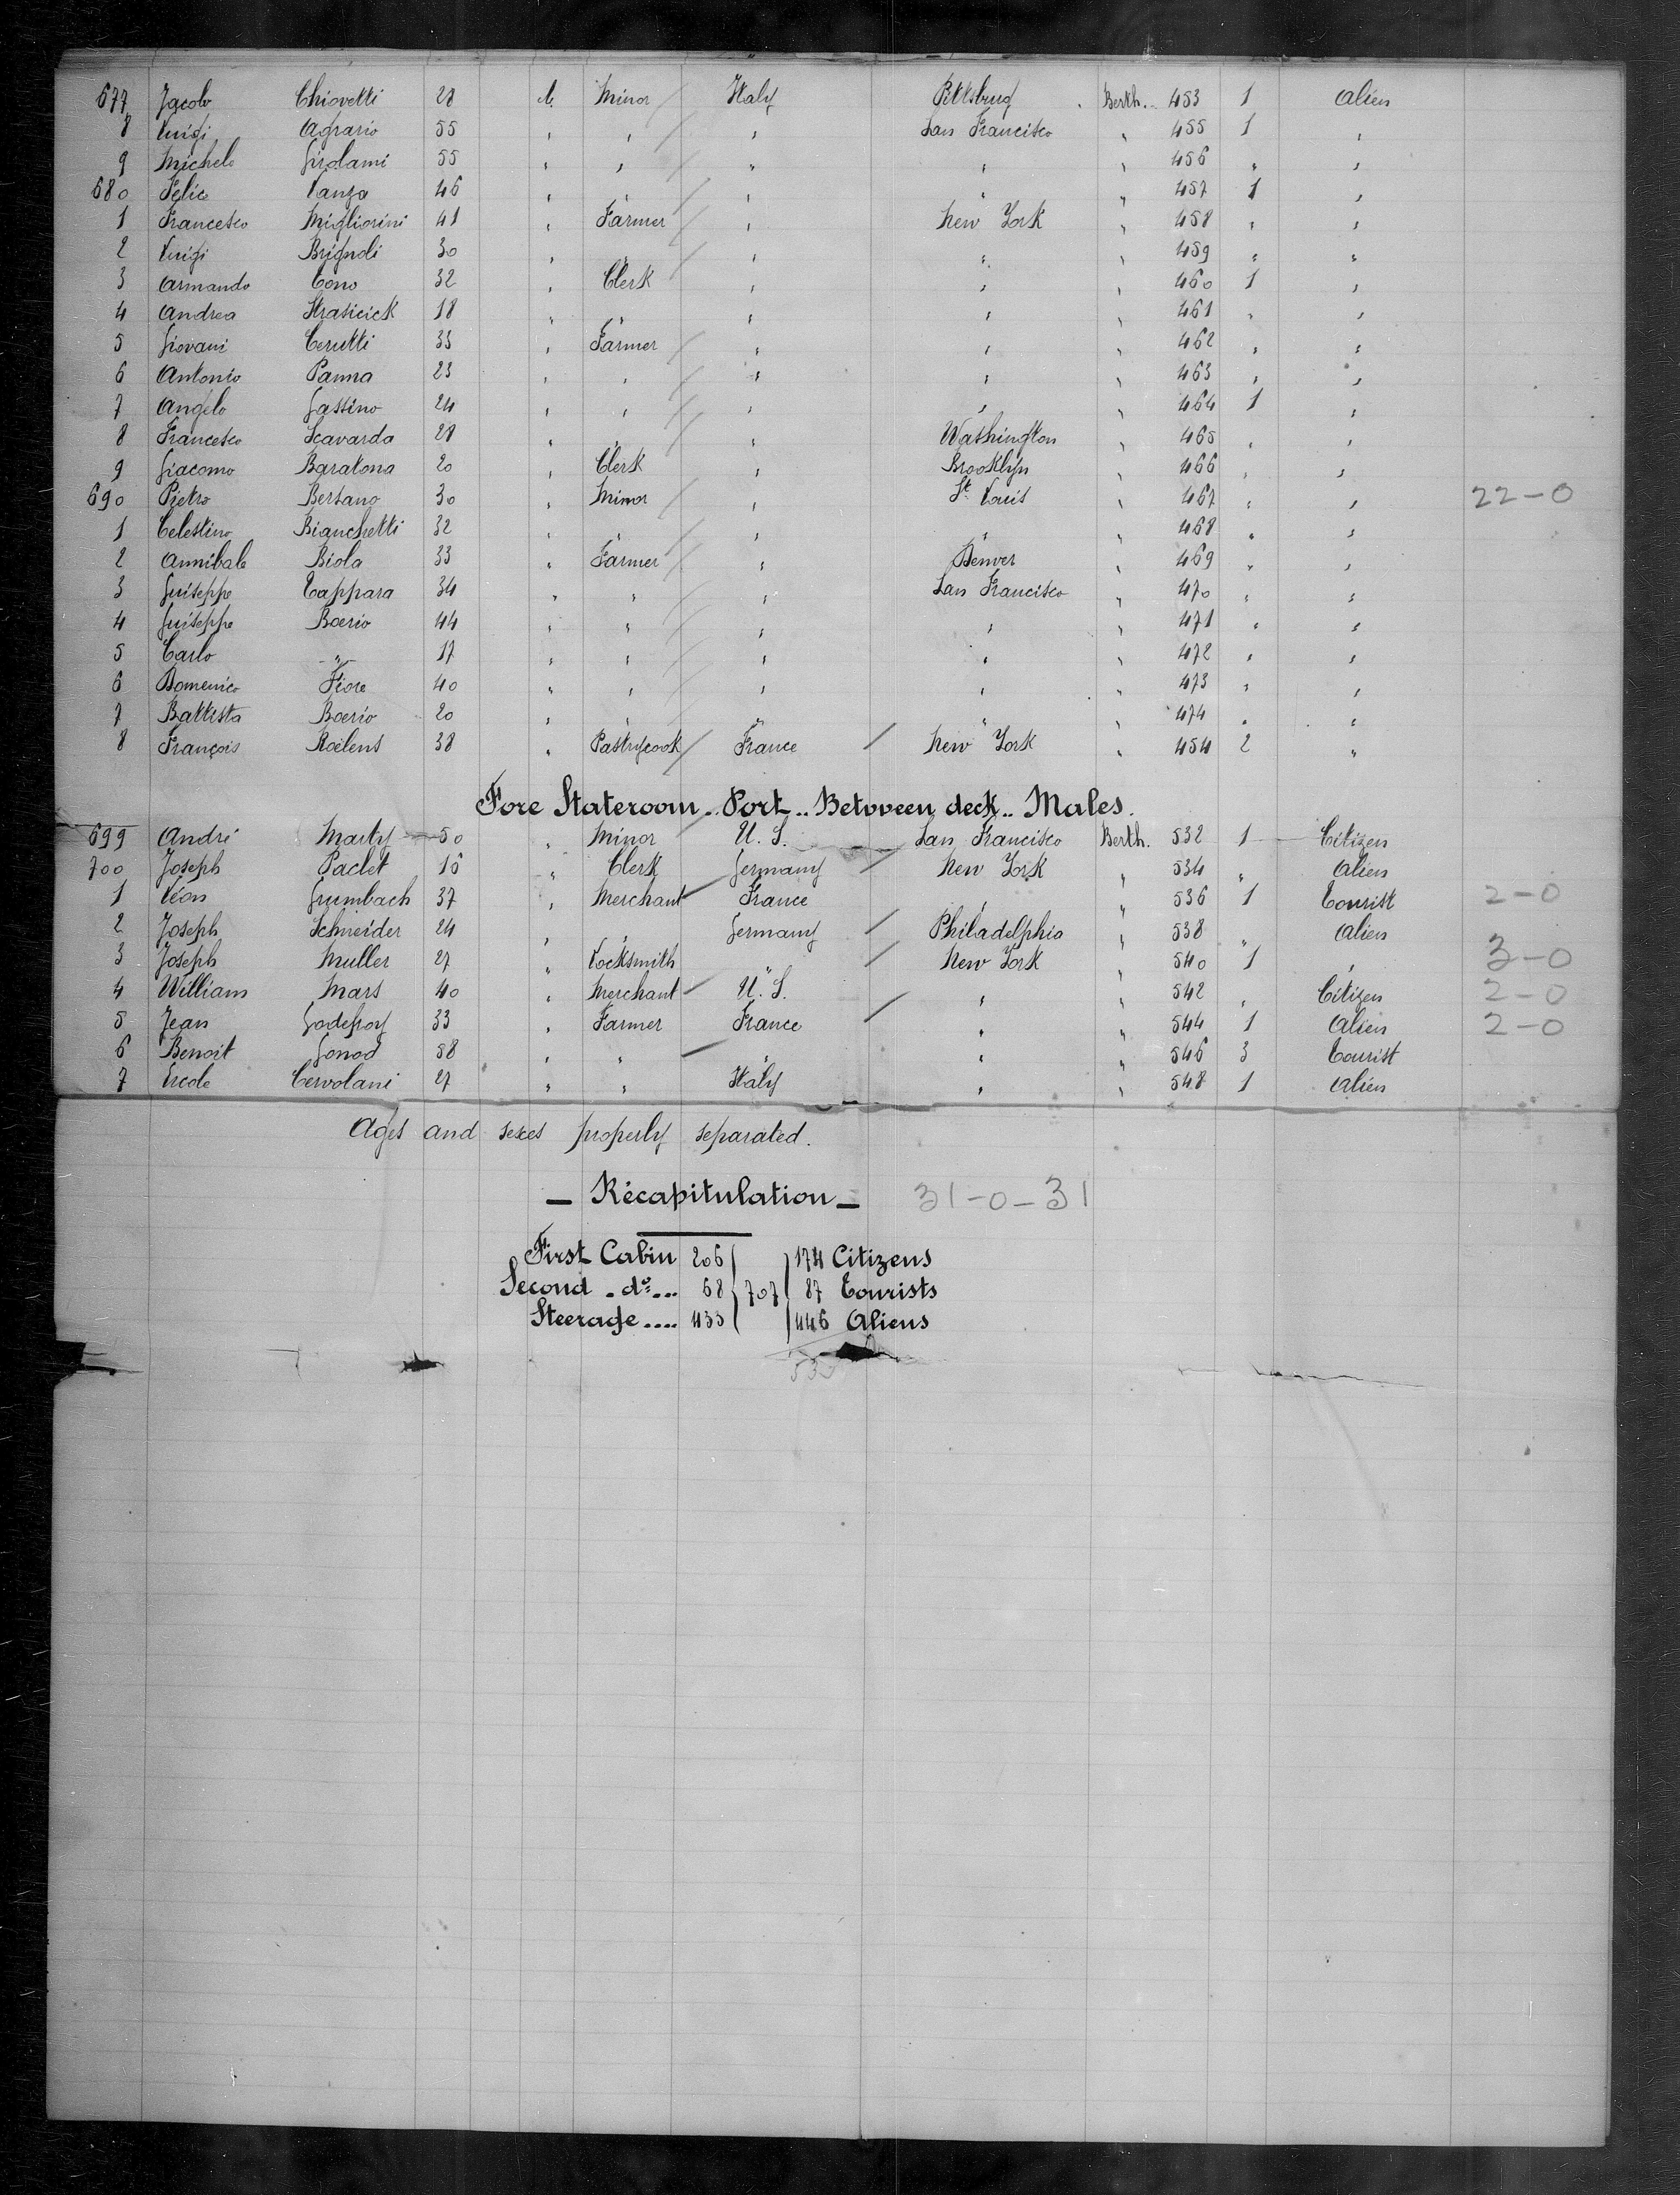 677 Jacob Chiovetti 28 d. Minor Italy Pittsburg Berth. 453 1 Alien
8 Luigi Agrario 55 " " " San Francisco " 455 1 "
9 Michele Girolami 55 " " " " " 456 " "
680 Felice Lanza 46 " " " " " 457 1 "
1 Francesco Migliorini 41 " Farmer " New York " 458 " "
2 Luigi Brignoli 30 " " " " " 459 " "
3 Armando Cono 32 " Clerk " " " 460 1 "
4 Andrea Strasicick 18 " " " " " 461 " "
5 Giovani Cerutti 33 " Farmer " " " 462 " "
6 Antonio Panna 23 " " " " " 463 " "
7 Angelo Gastino 24 " " " " " 464 1 "
8 Francesco Scavarda 28 " " " Washington " 465 " "
9 Giacomo Baratona 20 " Clerk " Brooklyn " 466 " "
690 Pietro Bersano 30 " Minor " St Louis " 467 " " 22-0
1 Celestino Bianchetti 32 " " " " " 468 " "
2 Annibale Biola 33 " Farmer " Denver " 469 " "
3 Guiseppe Cappara 34 " " " San Francisco " 470 " "
4 Guiseppe Boerio 44 " " " " " 471 " "
5 Carlo " 17 " " " " " 472 " "
6 Domenico Fiore 40 " " " " " 473 " "
7 Battista Boerio 20 " " " " " 474 " "
8 François Roelens 38 " Pastrycook France New York " 454 2 "
Fore Stateroom .. Port .. Between deck .. Males.
699 André Marty 50 " Minor U. S. San Francisco Berth. 532 1 Citizen
700 Joseph Paclet 16 " Clerk Germany New York " 534 " Alien
1 Léon Grumbach 37 " Merchant France " " 536 1 Tourist 2-0
2 Joseph Schneider 24 " " Germany Philadelphia " 538 " Alien
3 Joseph Muller 27 " Locksmith " New York " 540 1 " 3-0
4 William Mars 40 " Merchant U. S. " " 542 " Citizen 2-0
5 Jean Godefroy 33 " Farmer France " " 544 1 Alien 2-0
6 Benoit Gonod 58 " " " " " 546 3 Tourist
7 Ercole Cervolani 27 " " Italy " " 548 1 Alien
Ages and sexes properly separated.
— Récapitulation — 31-0-31
First Cabin 206 174 Citizens
Second . do ... 68 707 87 Tourists
Steerage .... 433 446 Aliens